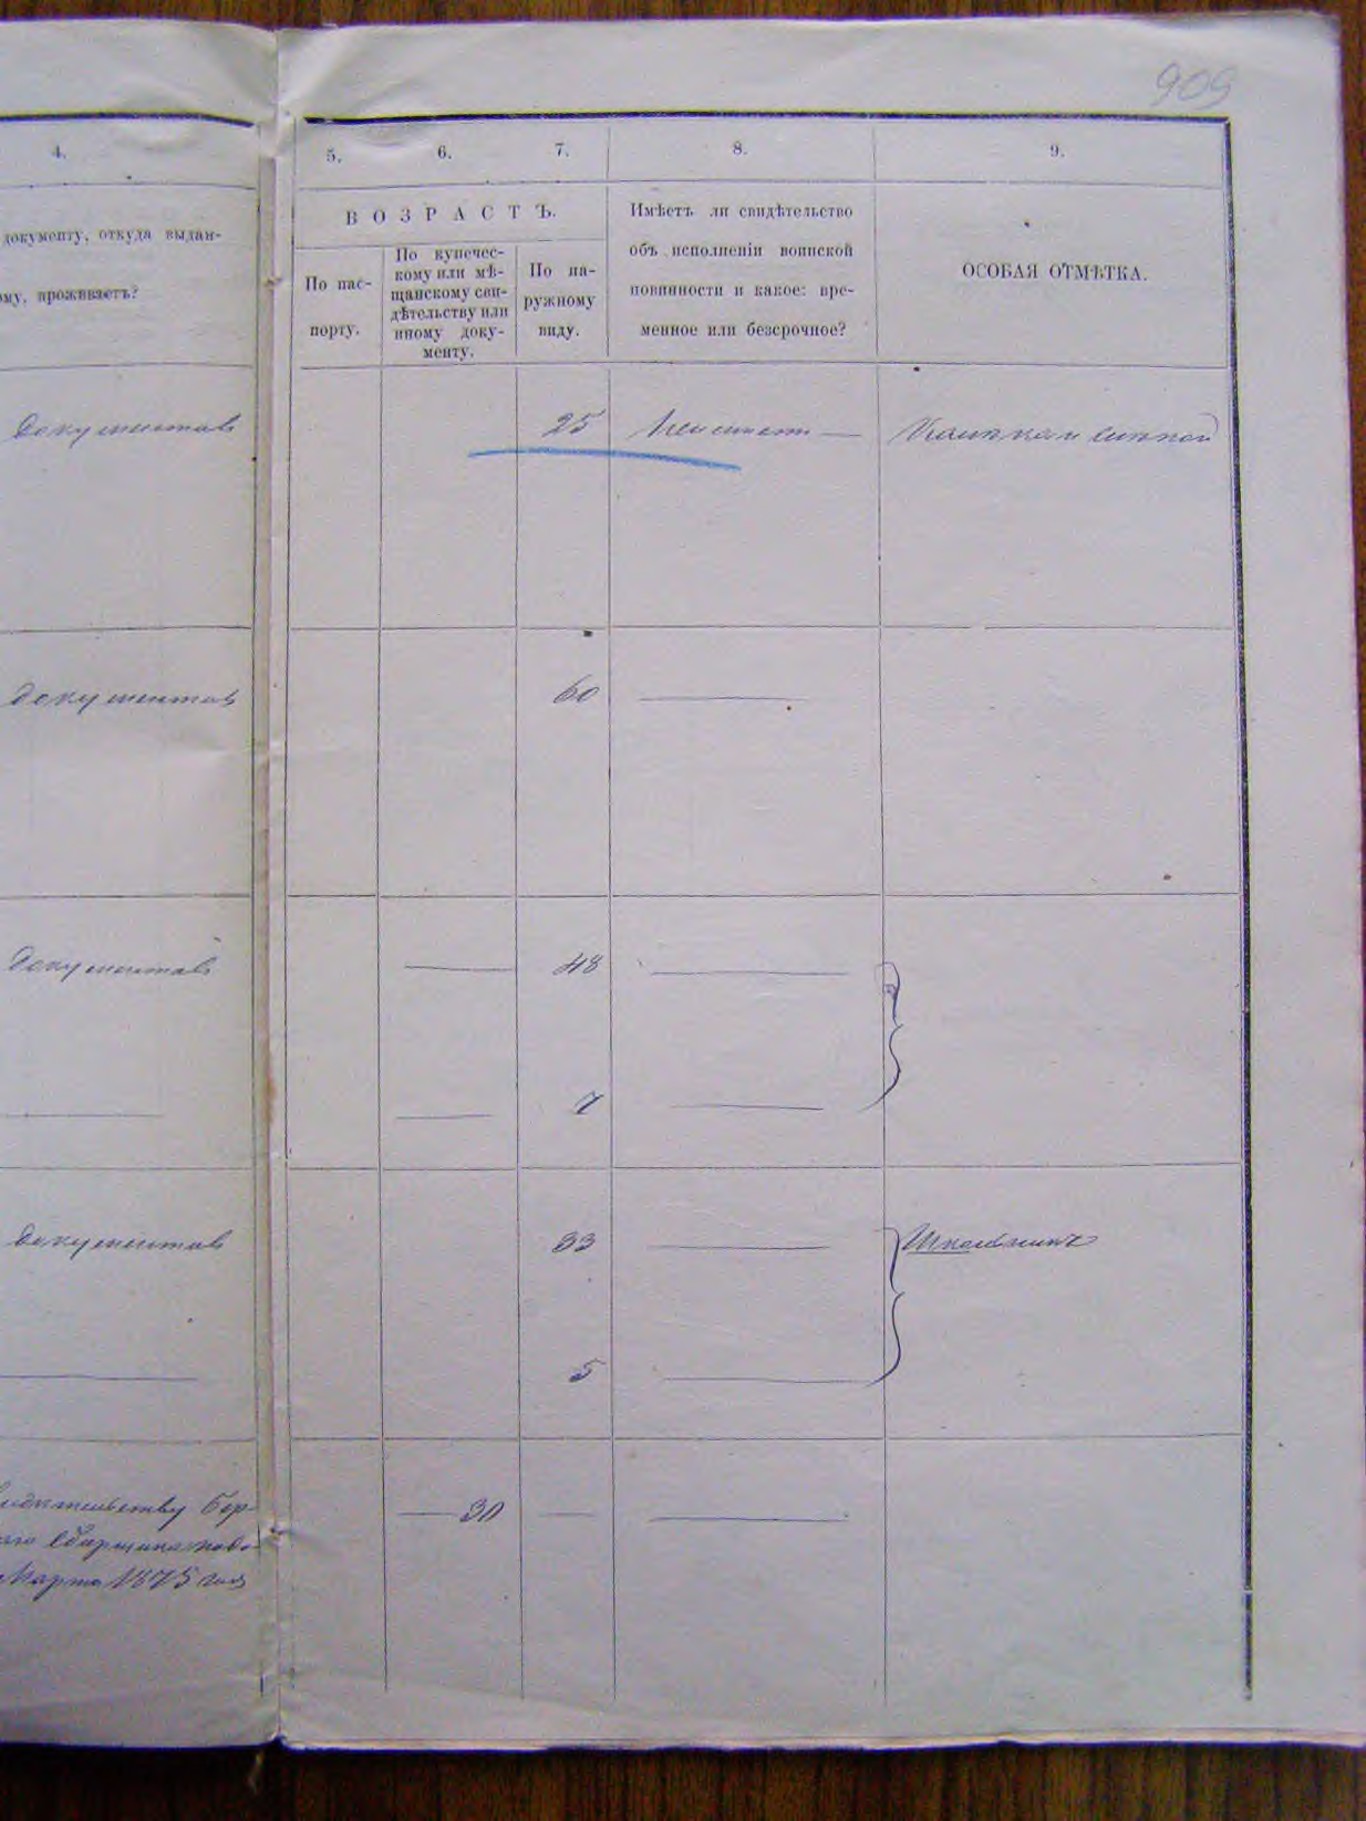 909
4.
5.
6.
7.
8.
9.
документу, откуда выдан-
ому, проживаетъ?
ВОЗРАСТЪ.
По пас-
порту.
По купечес-
кому или мѣ-
щанскому сви-
дѣтельству или
иному доку-
менту.
По на-
ружному
виду.
Имѣетъ ли свидѣтельство
объ исполненіи воинской
повинности и какое: вре-
менное или безсрочное?
ОСОБАЯ ОТМѢТКА.
документовъ
25
Неимѣетъ
документовъ
60
документовъ
48
7
документовъ
33
Школьникъ
5
30
Марта 1875 года